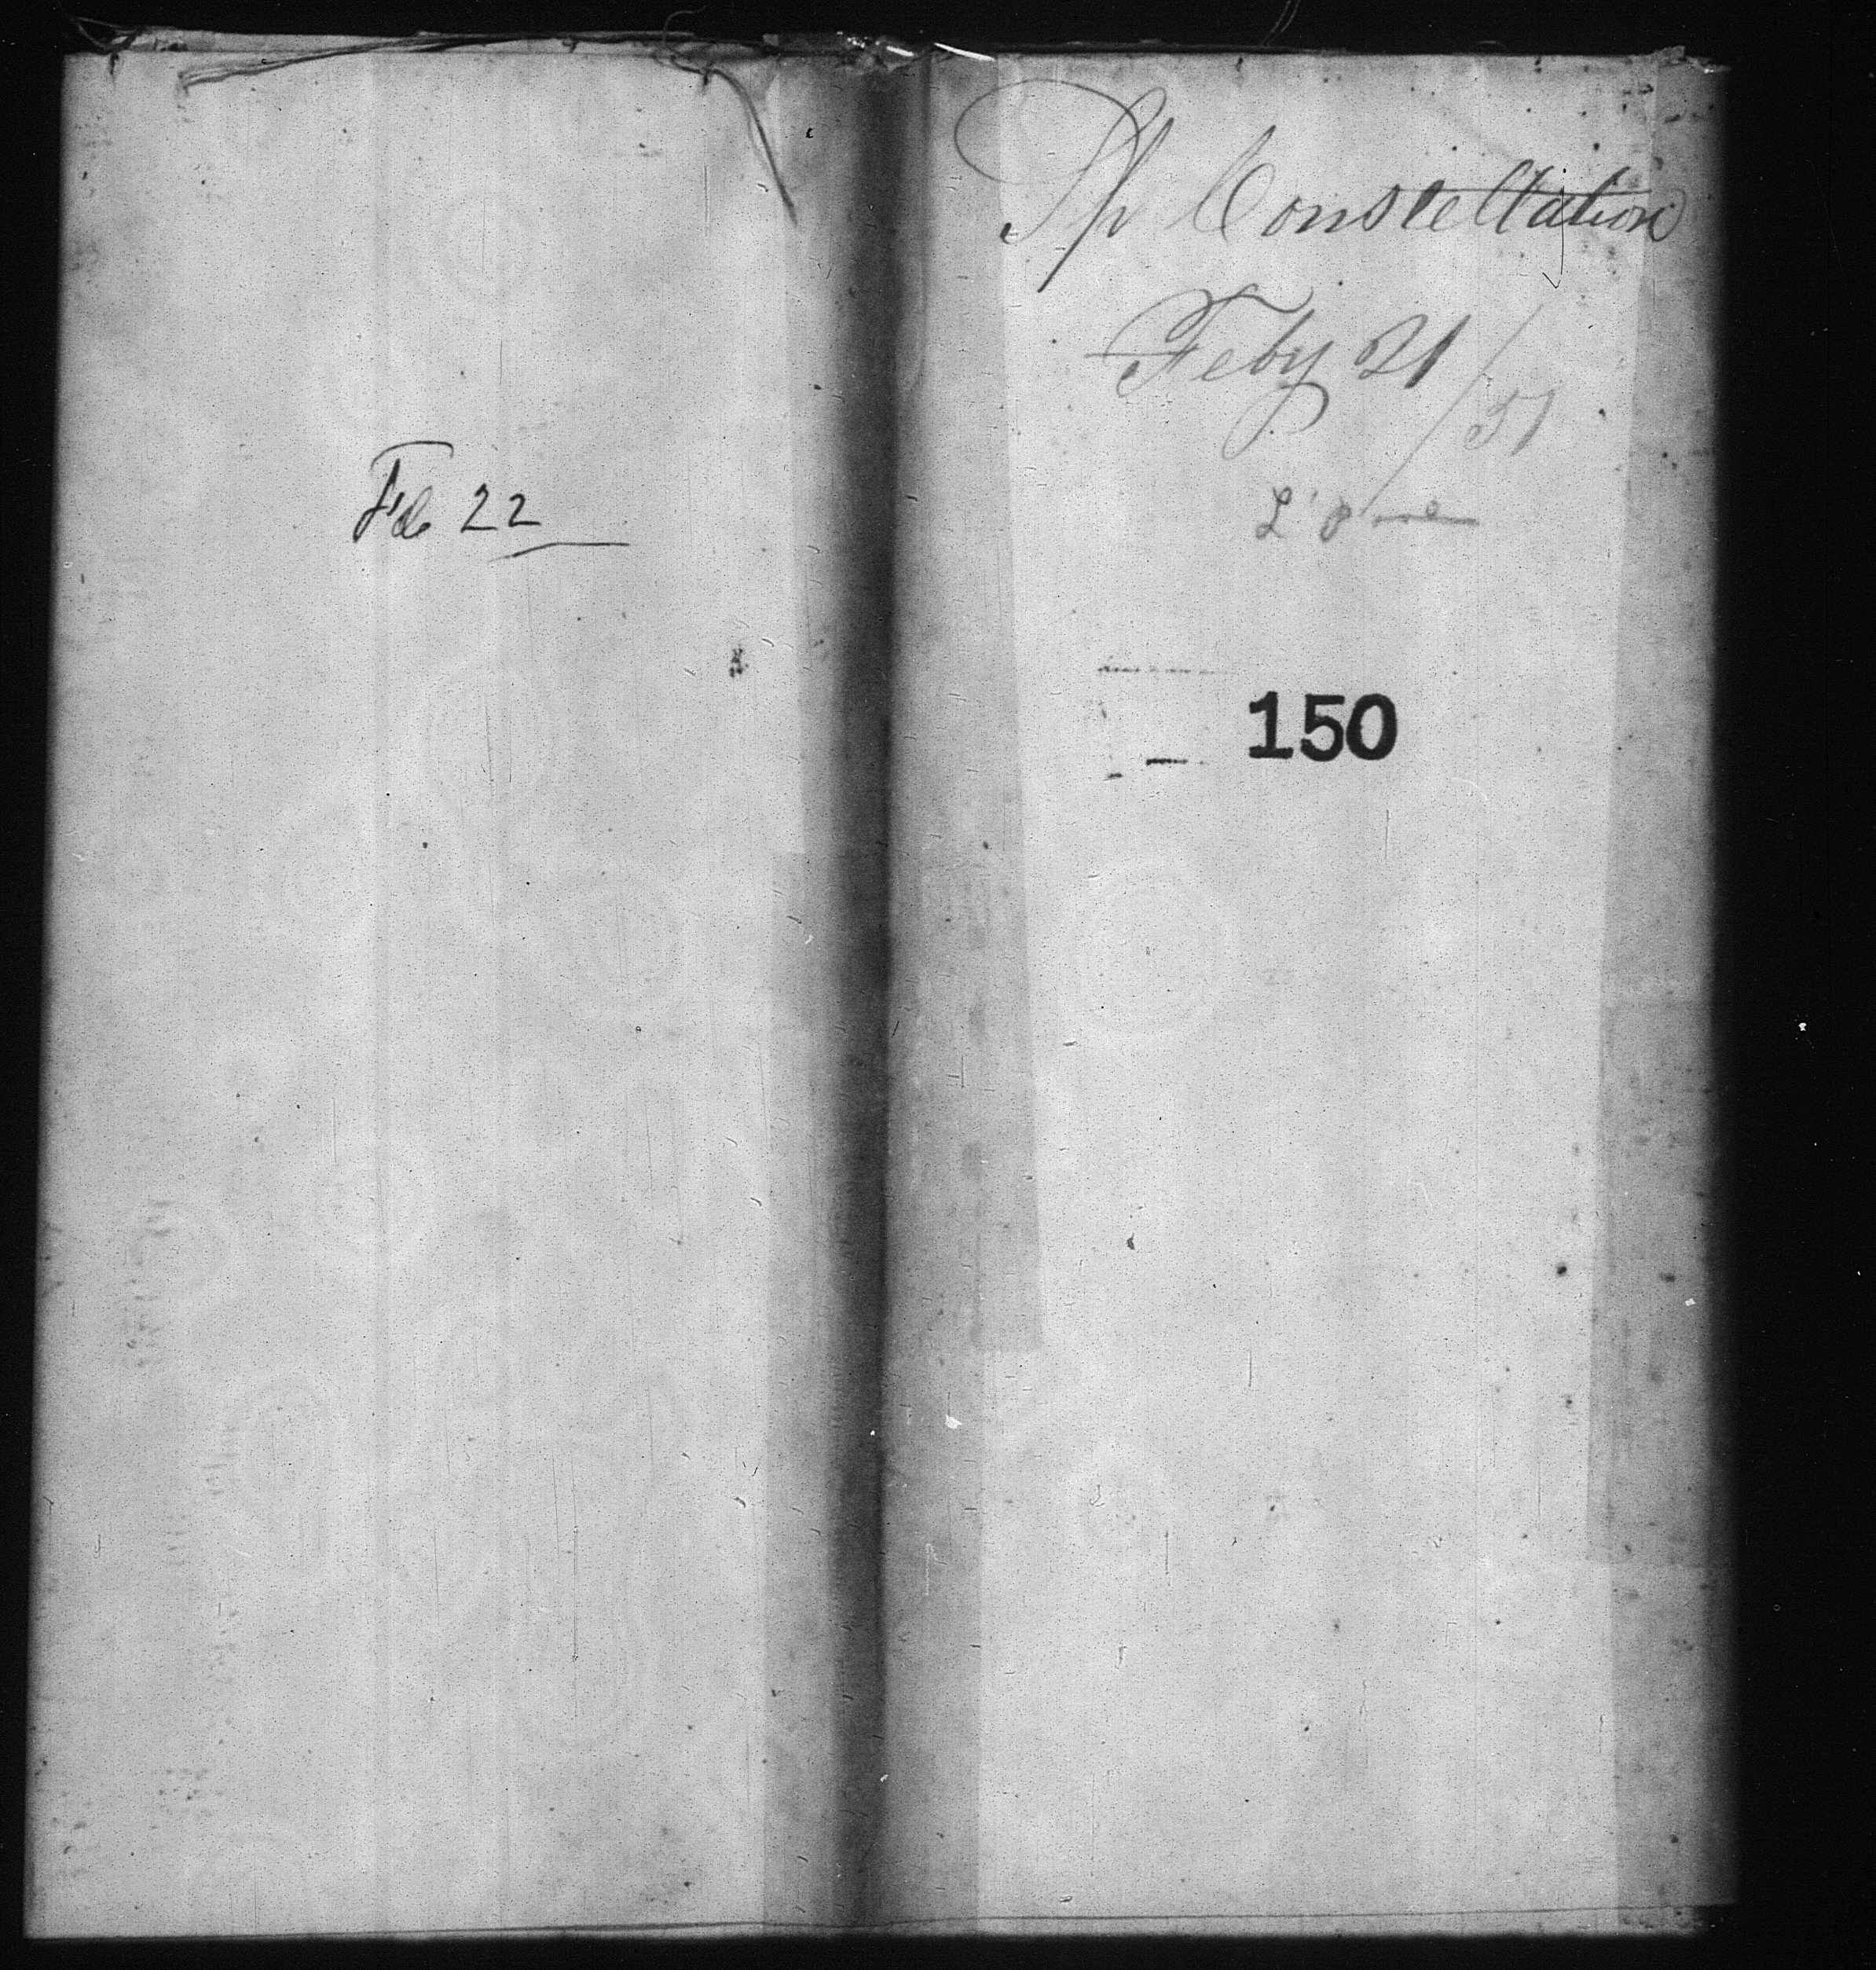 Feb 22
Sp Constellation
Feby 21/51
L'pool
150